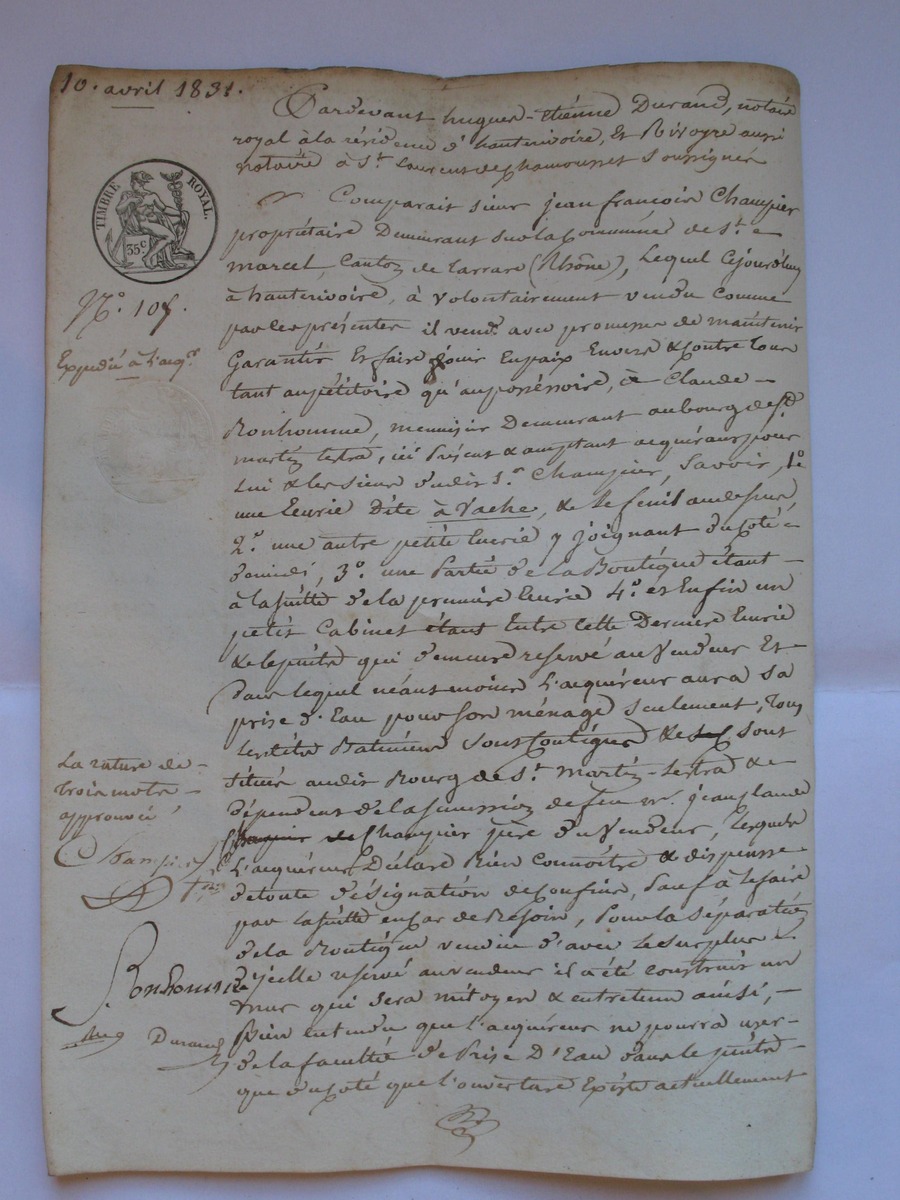 10. avril 1831.
Pardevant hugues-étiénne Durand, notaire
royal à la résidence d'hauterivoire, Et Rivoyre aussi
notaire à St. Laurent de chamousset soussignés
Comparait sieur jean françois Champier
propriétaire Demeurant sur la Commune de St.
marcel, Canton de tarrare (Rhône), Lequel Cejourd'huy
à hauterivoire, à volontairement vendu comme
par les présentes il vend avec promesse de maintenir
Garantir Et faire jouir En paix Envers & contre tous
tant au pétitoire qu'au possessoire, à Claude
Bonhomme, menuisier Demeurant au bourg de St.
martin lestra, ici Présent & acceptant acquéreur pour
Lui & les siens dudit Sr. Champier, Savoir, 1°
une Ecurie Dite à Vache, & le feuil au dessus
2°. une autre petite Ecurie y joignant du côté
de midi, 3°. une Partie de la Boutique étant
à la suitte de la première Ecurie 4°. et Enfin un
petit Cabinet étant Entre Cette Derniere Ecurie
& le puits qui demeure reservé au Vendeur Et
dans lequel néantmoins L'acquéreur aura sa
prise d'Eau pour son ménage seulement, Tous
Lesdits Batiments sont Contigus & sont
situés audit Bourg de St. martin-Lestra &
dépendent de la succession de feu Mr. jean claude
Champier père du Vendeur, Lesquels
L'acquéreur Déclare Bien connoitre & dispense
de toute désignation de confins, Sauf à le faire
par la suitte en cas de Besoin, Pour la séparation
de la Boutique vendue d'avec Le surplus
d'jcelle reservé au vendeur il a été construit un
mur qui sera mitoyen & entretenu ainsi,
Bien entendu que l'acquéreur ne pourra user
de la faculté de Prise D'Eau dans le puits
que du côté que l'ouverture Existe actuellement
TIMBRE ROYAL.
35c.
N°. 105.
Expédié à L'acqr.
La rature de
trois mots
approuvée
Champier
Bonhomme
Durand